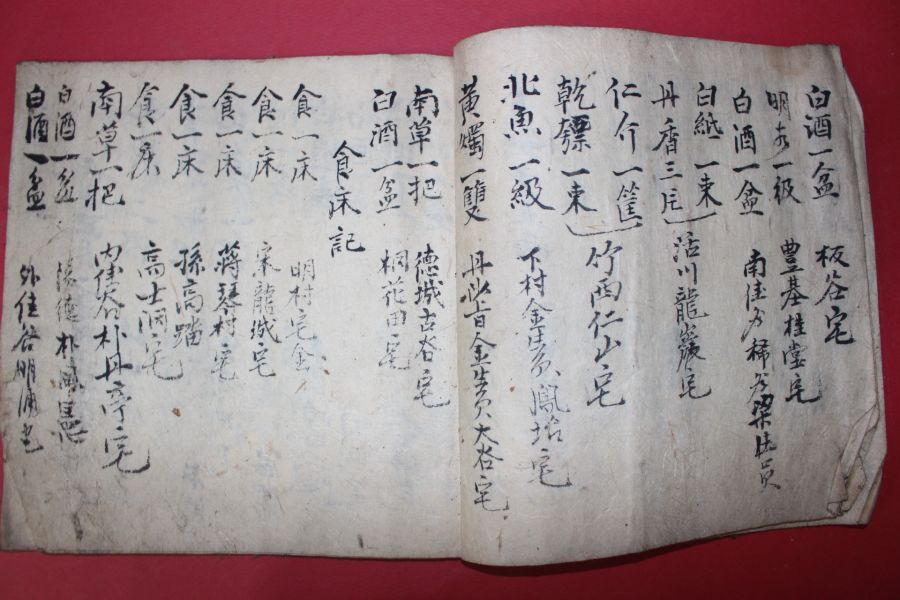 白酒一盆 板谷宅
明太一級 豊基桂堂宅
白酒一盆 南佳谷梯谷梁生員
白紙一束
丹香三片 活川龍巖宅
仁介一筐
乾鰾一束 竹西仁山宅
北魚一級 下村金生員鳳培宅
黃燭一雙 丹 金生員大谷宅
南草一把 德城古谷宅
白酒一盆 桐花田宅
食床記
食一床 明村宅金
食一床 宋龍城宅
食一床 蔣琴村宅
食一床 孫高踏
食一床 高士洞宅
南草一把 內佳谷朴丹亭宅
白酒一盆 朴
白酒一盆 外佳谷明浦宅